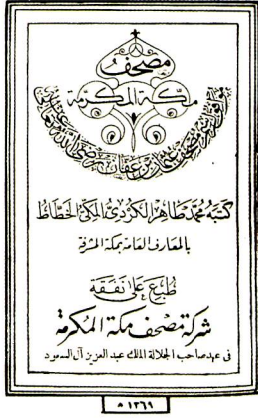 مصحف
مكة المكرمة
كتبه محمد طاهر الكردي المكي الخطاط
بالمعارف العامة بمكة المشرفة
طبع على نفقة
شركة مصحف مكة المكرمة
فى عهد صاحب الجلالة الملك عبد العزيز آل السعود
١٣٦٩ ه